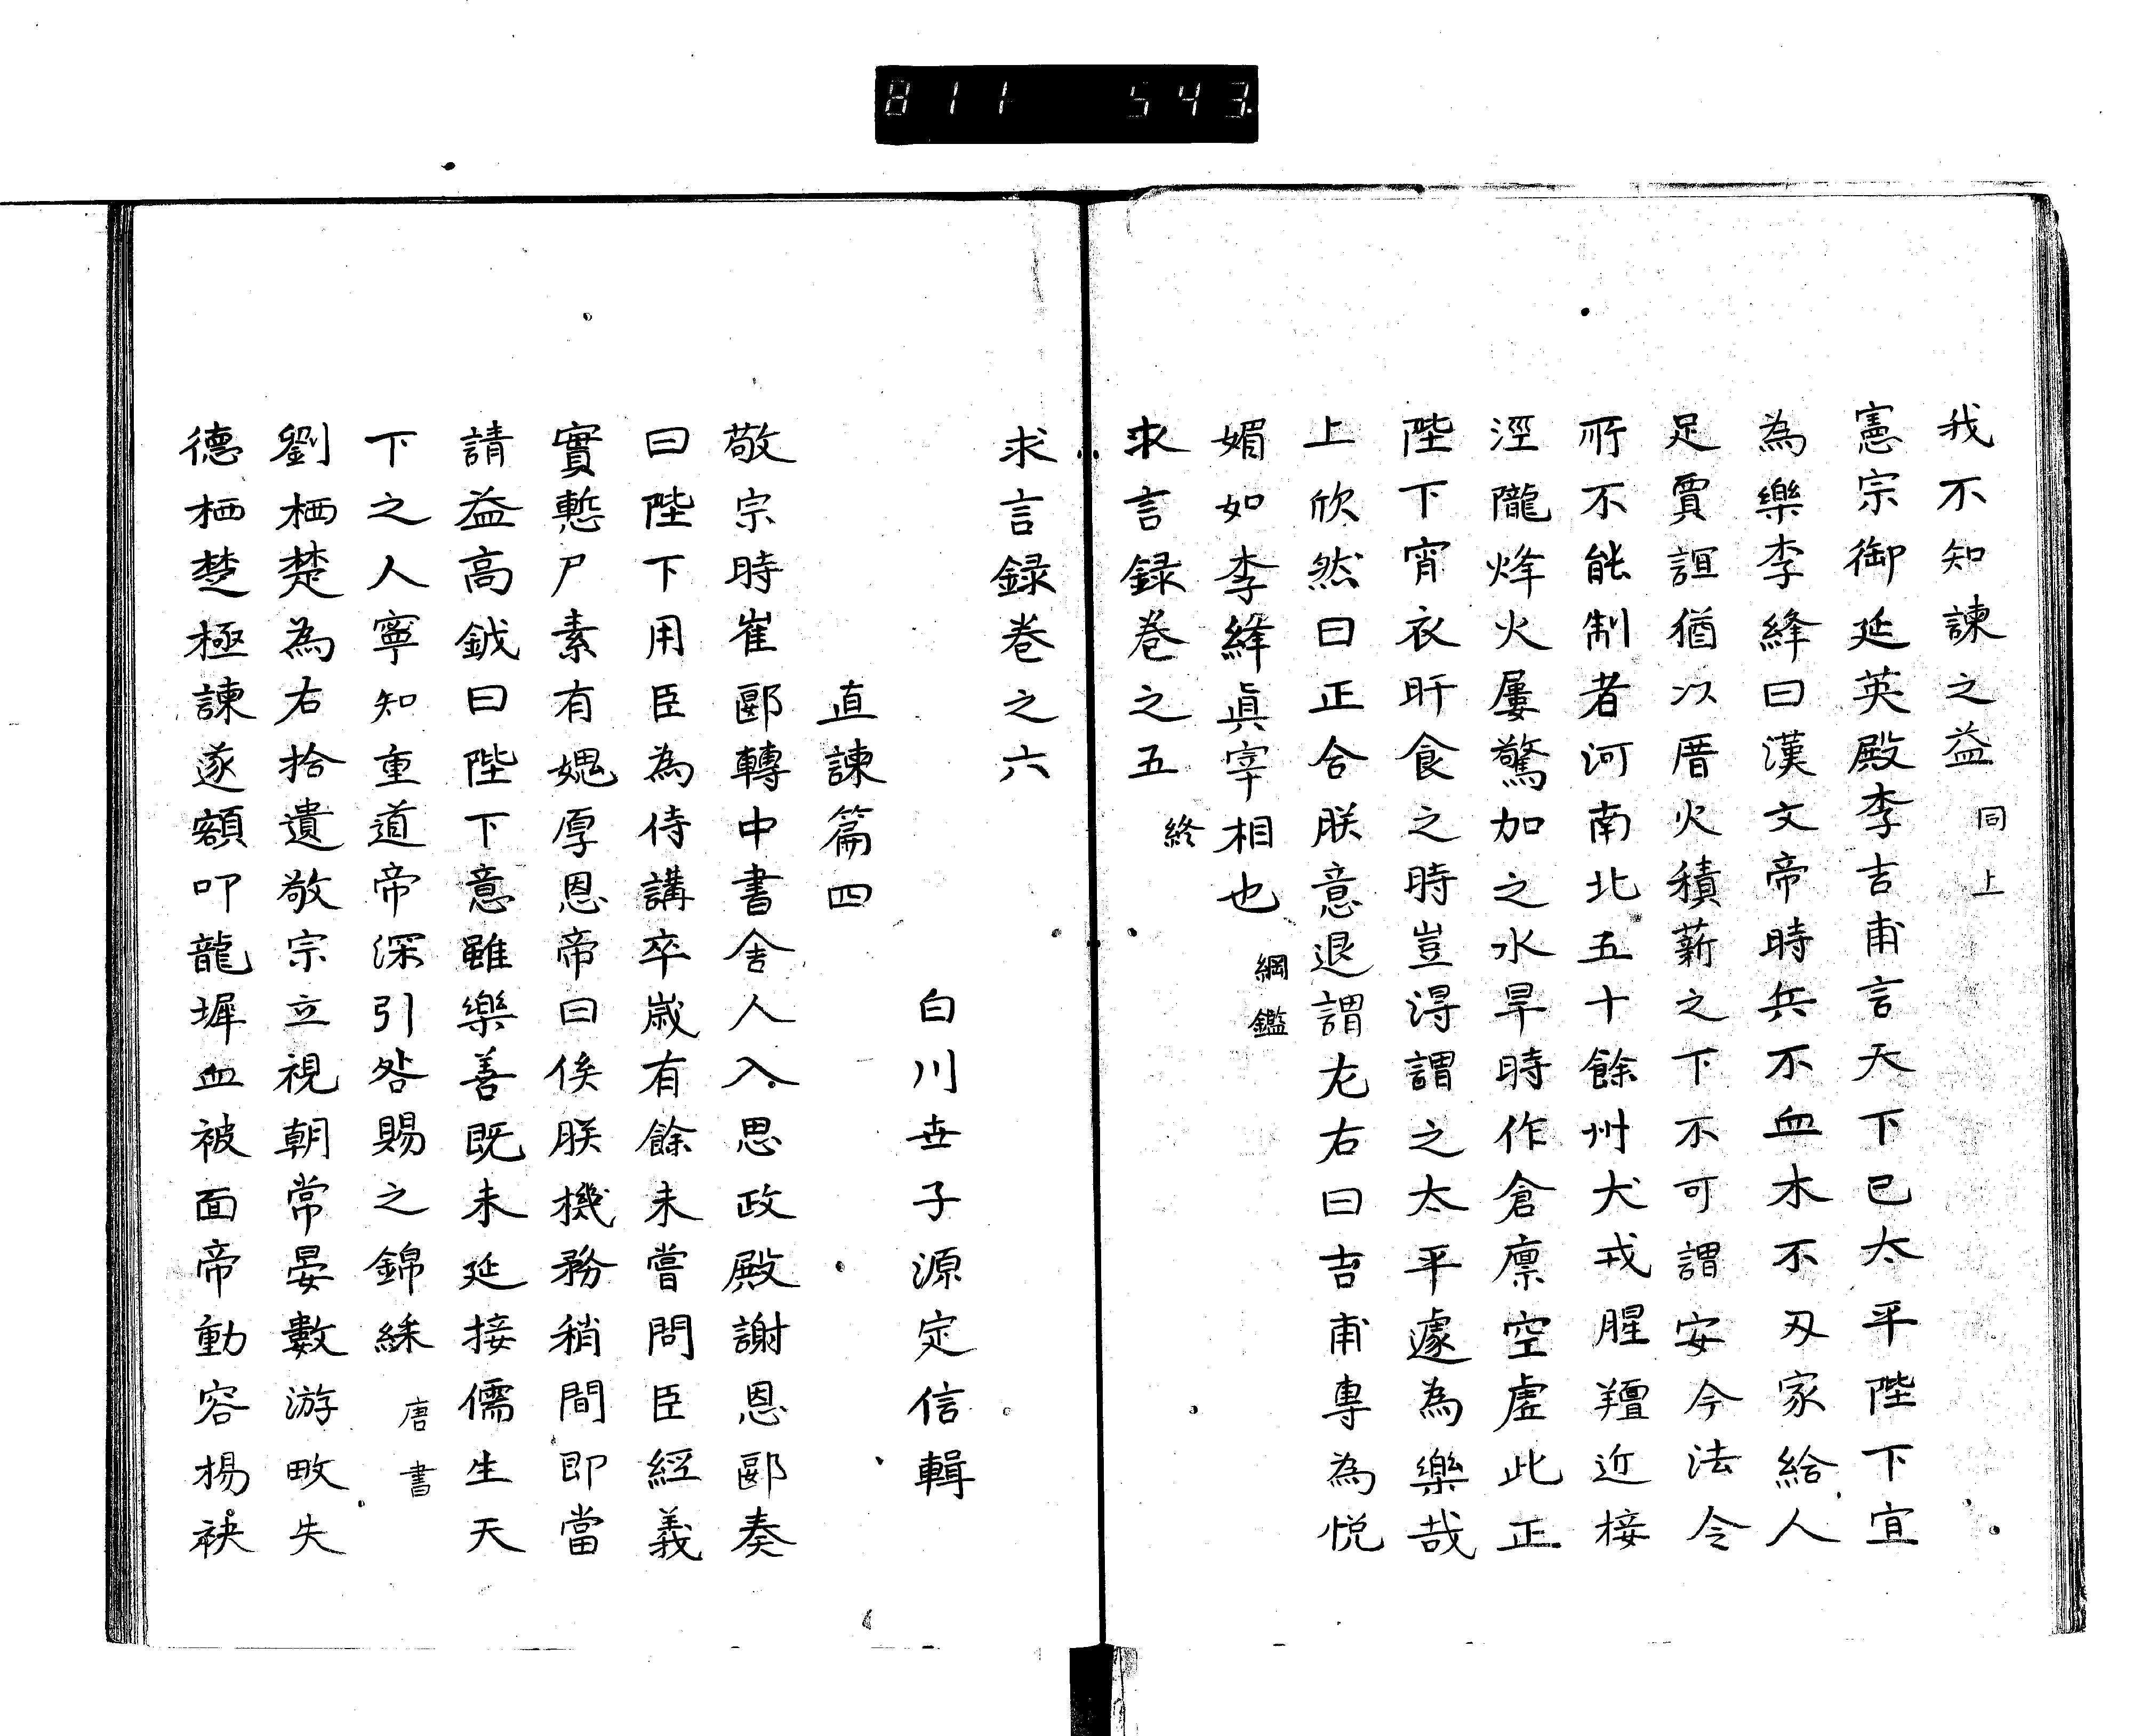 811 543
我不知諫之益 同上
憲宗御延英殿李吉甫言天下已太平陛下宜
為樂李絳曰漢文帝時兵不血木不刃家給人
足賈誼猶以厝火積薪之下不可謂安今法令
所不能制者河南北五十餘州犬戎腥羶近接
涇隴烽火屢驚加之水旱時作倉廩空虛此正
陛下宵衣旰食之時豈得謂之太平遽為樂哉
上欣然曰正合朕意退謂左右曰吉甫專為悅
媚如李絳眞宰相也 綱鑑
求言録卷之五 終
求言録卷之六
白川世子源定信輯
直諫篇四
敬宗時崔郾轉中書舍人入思政殿謝恩郾奏
曰陛下用臣為侍講卒歲有餘未嘗問臣經義
實慙尸素有媿厚恩帝曰俟朕機務稍間即當
請益高釴曰陛下意雖樂善既未延接儒生天
下之人寧知重道帝深引咎賜之錦綵 唐書
劉栖楚為右拾遺敬宗立視朝常晏數游畋失
德栖楚極諫遂額叩龍墀血被面帝動容揚袂